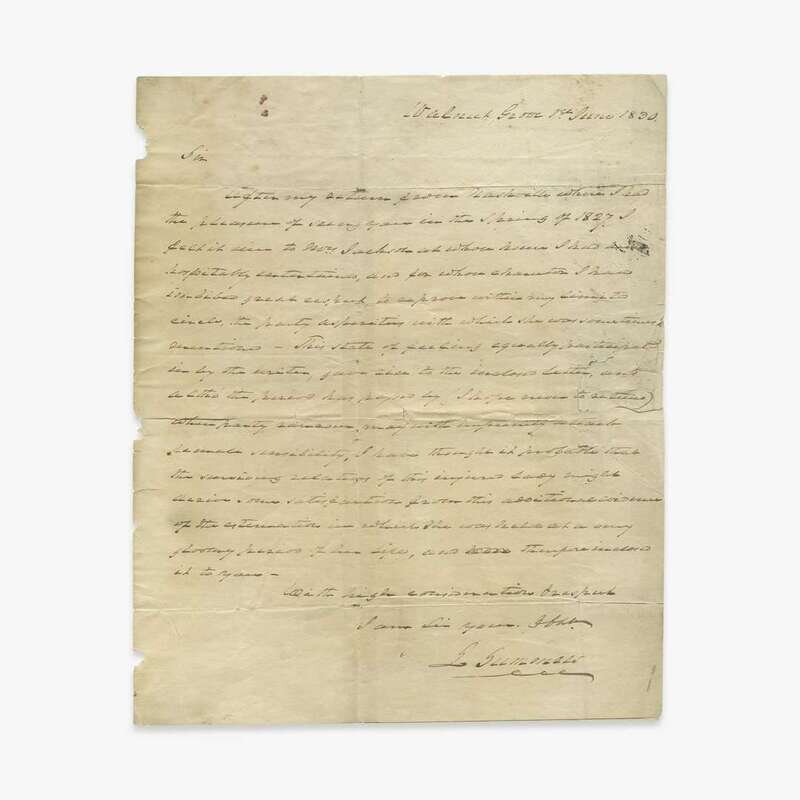 Walnut Grove 1st June 1830.
Sir
After my return from Nashville where I had
the pleasure of seeing you in the Spring of 1827 I
felt it due to Mrs Jackson at whose house I had
hospitably entertained, and for whose character I had
imbibed great respect, to express within my limited
circle, the party asperities with which she was sometimes
mentioned — This state of feeling equally participated
in by the writer, gave rise to the inclosed letter, and
altho the period has passed by, I hope never to return
when party may with impunity attack
female sensibility, I have thought it probable that
the surviving relatives of this injured Lady might
derive some satisfaction from this additional evidence
of the estimation in which she was held at a very
gloomy period of her life, and therefore inclosed
it to you —
With high consideration & respect
I am Sir your